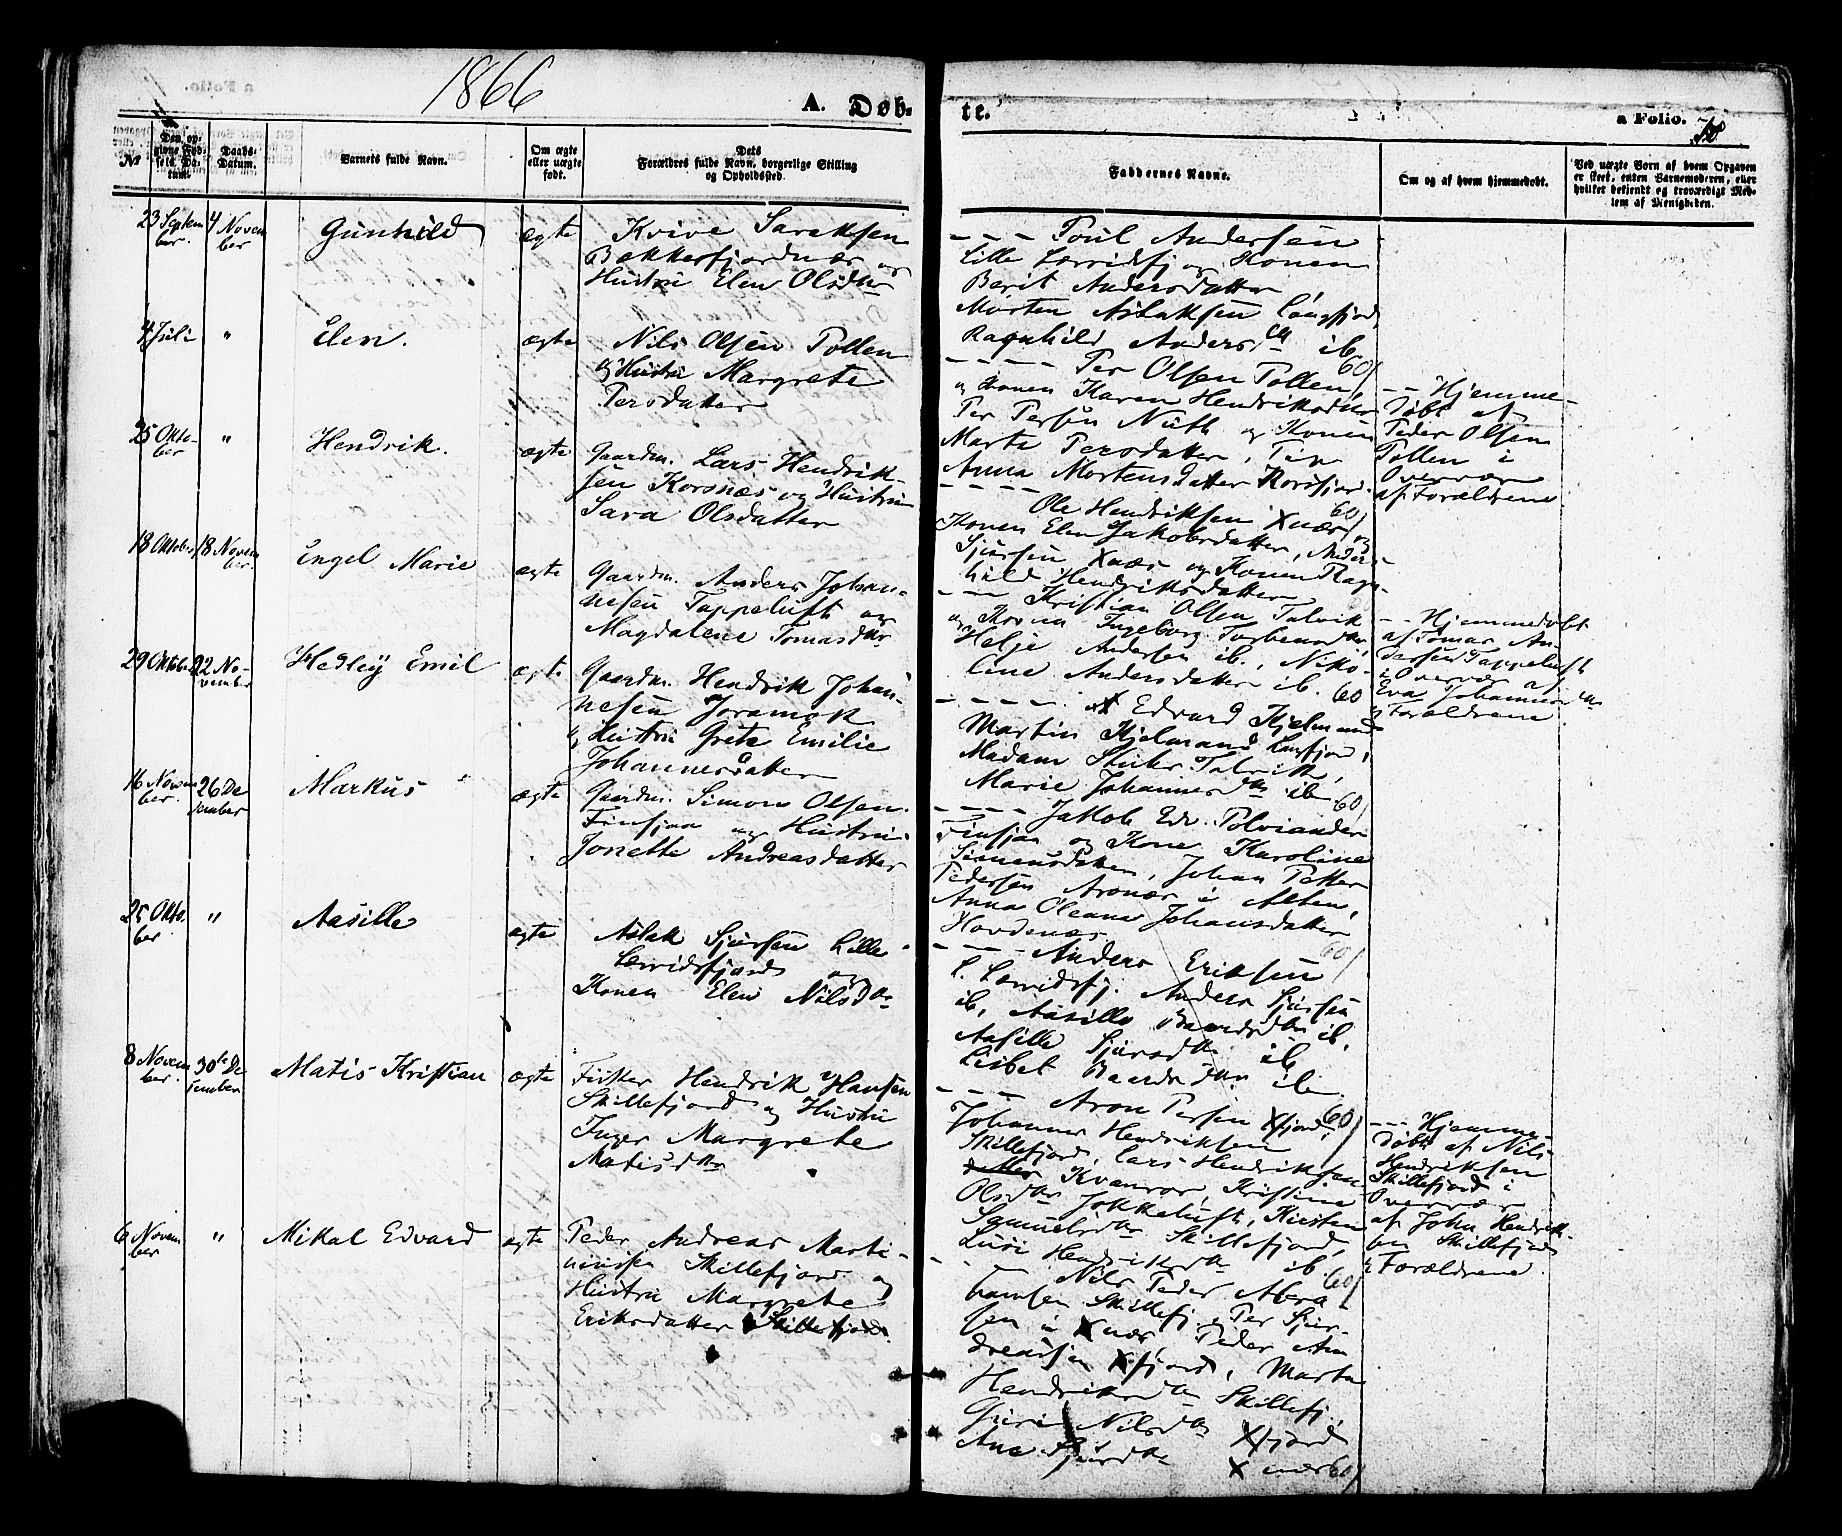 1866
A. Døb-
te.
a Folio.
№
Den op-
givne Fød-
sels Da-
tum.
Daabs-
Datum.
Barnets fulde Navn.
Om ægte
eller uægte
født.
Dets
Forældres fulde Navn, borgerlige Stilling
og Opholdssted.
Faddernes Navne.
Om og af hvem hjemmedøbt.
Ved uægte Børn af hvem Opgaven
er skeet, enten Barnemoderen, eller
hvilket bekjendt og troværdigt Med-
lem af Menigheden.
23 Septem
ber.
4 Novem
ber
Gunhild
ægte
Kvive Sareksen
Bekkerfjordnær og
Hustru Elen Olsdtr
- - - Poul Andersen
Lille Lerridsfj og Konen
Berit Andersdatter,
Morten Aslaksen Langfjord,
Ragnhild Andersdtr ib.
60/
4 Juli
"
Elen.
ægte
Nils Olsen Pollen
og Hustru Margrete
Persdatter
- - - - Per Olsen Pollen,
og Konen Karen Hendriksdatter
Per Persen Nuth og Konen
Marte Persdatter,
Anna Mortensdatter Korsfjord.
60/
- - Hjemme-
døbt af
Peder Olsen
Pollen i
Overvær
af Forældrene
25 Okto-
ber
"
Hendrik.
ægte
Gaardm. Lars Hendrik-
sen Korsnæs og Hustru
Sara Olsdatter
- - - - Ole Hendriksen Xnær og
Konen Elen Jakobsdatter, Anders
Sjursen Xnær og Konen Ragn-
hild Hendriksdatter
18 Oktober
18 Novem
ber.
Engel Marie
ægte
Gaardm. Anders Johan-
nesen Tappeluft og
Magdalene Tomasdtr.
- - - Kristian Olsen Talvik
og Kona Ingeborg Torbensdtr,
Helje Andersen ib., Niko-
line Andersdatter ib.
60
- - Hjemmedøbt
af Tomas An-
dersen Tappeluft
i Overvær af
Eva Johannesen
og Forældrene
29 Oktober
22 No-
vember
Hedley Emil
ægte
Gaardm. Hendrik Johan-
nesen Joramok
og Hustru Grete Emilie
Johannesdatter
- - - - Edvard Hjelmand
Martin Hjelmand Langfjord,
Madam Talvik,
Marie Johannesdtr ib
60/
16 Novem
ber.
26 De
cember
Markus
ægte
Gaardm. Simon Olsen
Finsjaa og Hustru
Jonette Andreasdatter
- - - - Jakob Edv. Polviander
Finsjaa og Kone Karoline
Simonsdatter, Johan Petter
Pedersen Aronær i Alten,
Anna Oleana Johansdatter
Hordenær
60/
25 Okto-
ber
"
Aasille
ægte
Aslak Sjursen Lille
Lerridsfjord og
Konen Elen Nilsdtr
- - - Anders Eriksen
L. Lerridsfj. Anders Sjursen
ib, Aasille Baardsdtr ib.
Aasille Sjursdtr ib
Lisbet Baardsdtr ib.
60/
8 Novem
ber.
30te De
cember
Matis Kristian
ægte
Fisker Hendrik Hansen
Skillefjord og Hustru
Inger Margrete
Matisdtr
- - - Aron Persen Xfjord,
Johannes Hendriksen
Skillefjord, Lars Hendriksen
Kvanvær, Kristine
Olsdtr Jokkeluft, Kirsten
Samuelsdtr Skillefjord,
Lusi Hendriksdtr ib
60/
- - - Hjemme-
døbt af Nils
Hendriksen
Skillefjord i
Overvær
af John Hendrik-
sen Skillefjord
og Forældrene
6 Novem
ber
"
Mikal Edvard
ægte
Peder Andreas Marti-
nussen Skillefjord og
Hustru Margrete
Eriksdatter Skillefjord.
- - Nils Peder Abra
hamsen Skillefj., Per Sjur-
sen i Xnær, Peder An
dreassen Xfjord, Marta
Hendriksdtr Skillefj.,
Guri Nilsdtr Xfjord
Ane Sjursdtr Xnær
60/